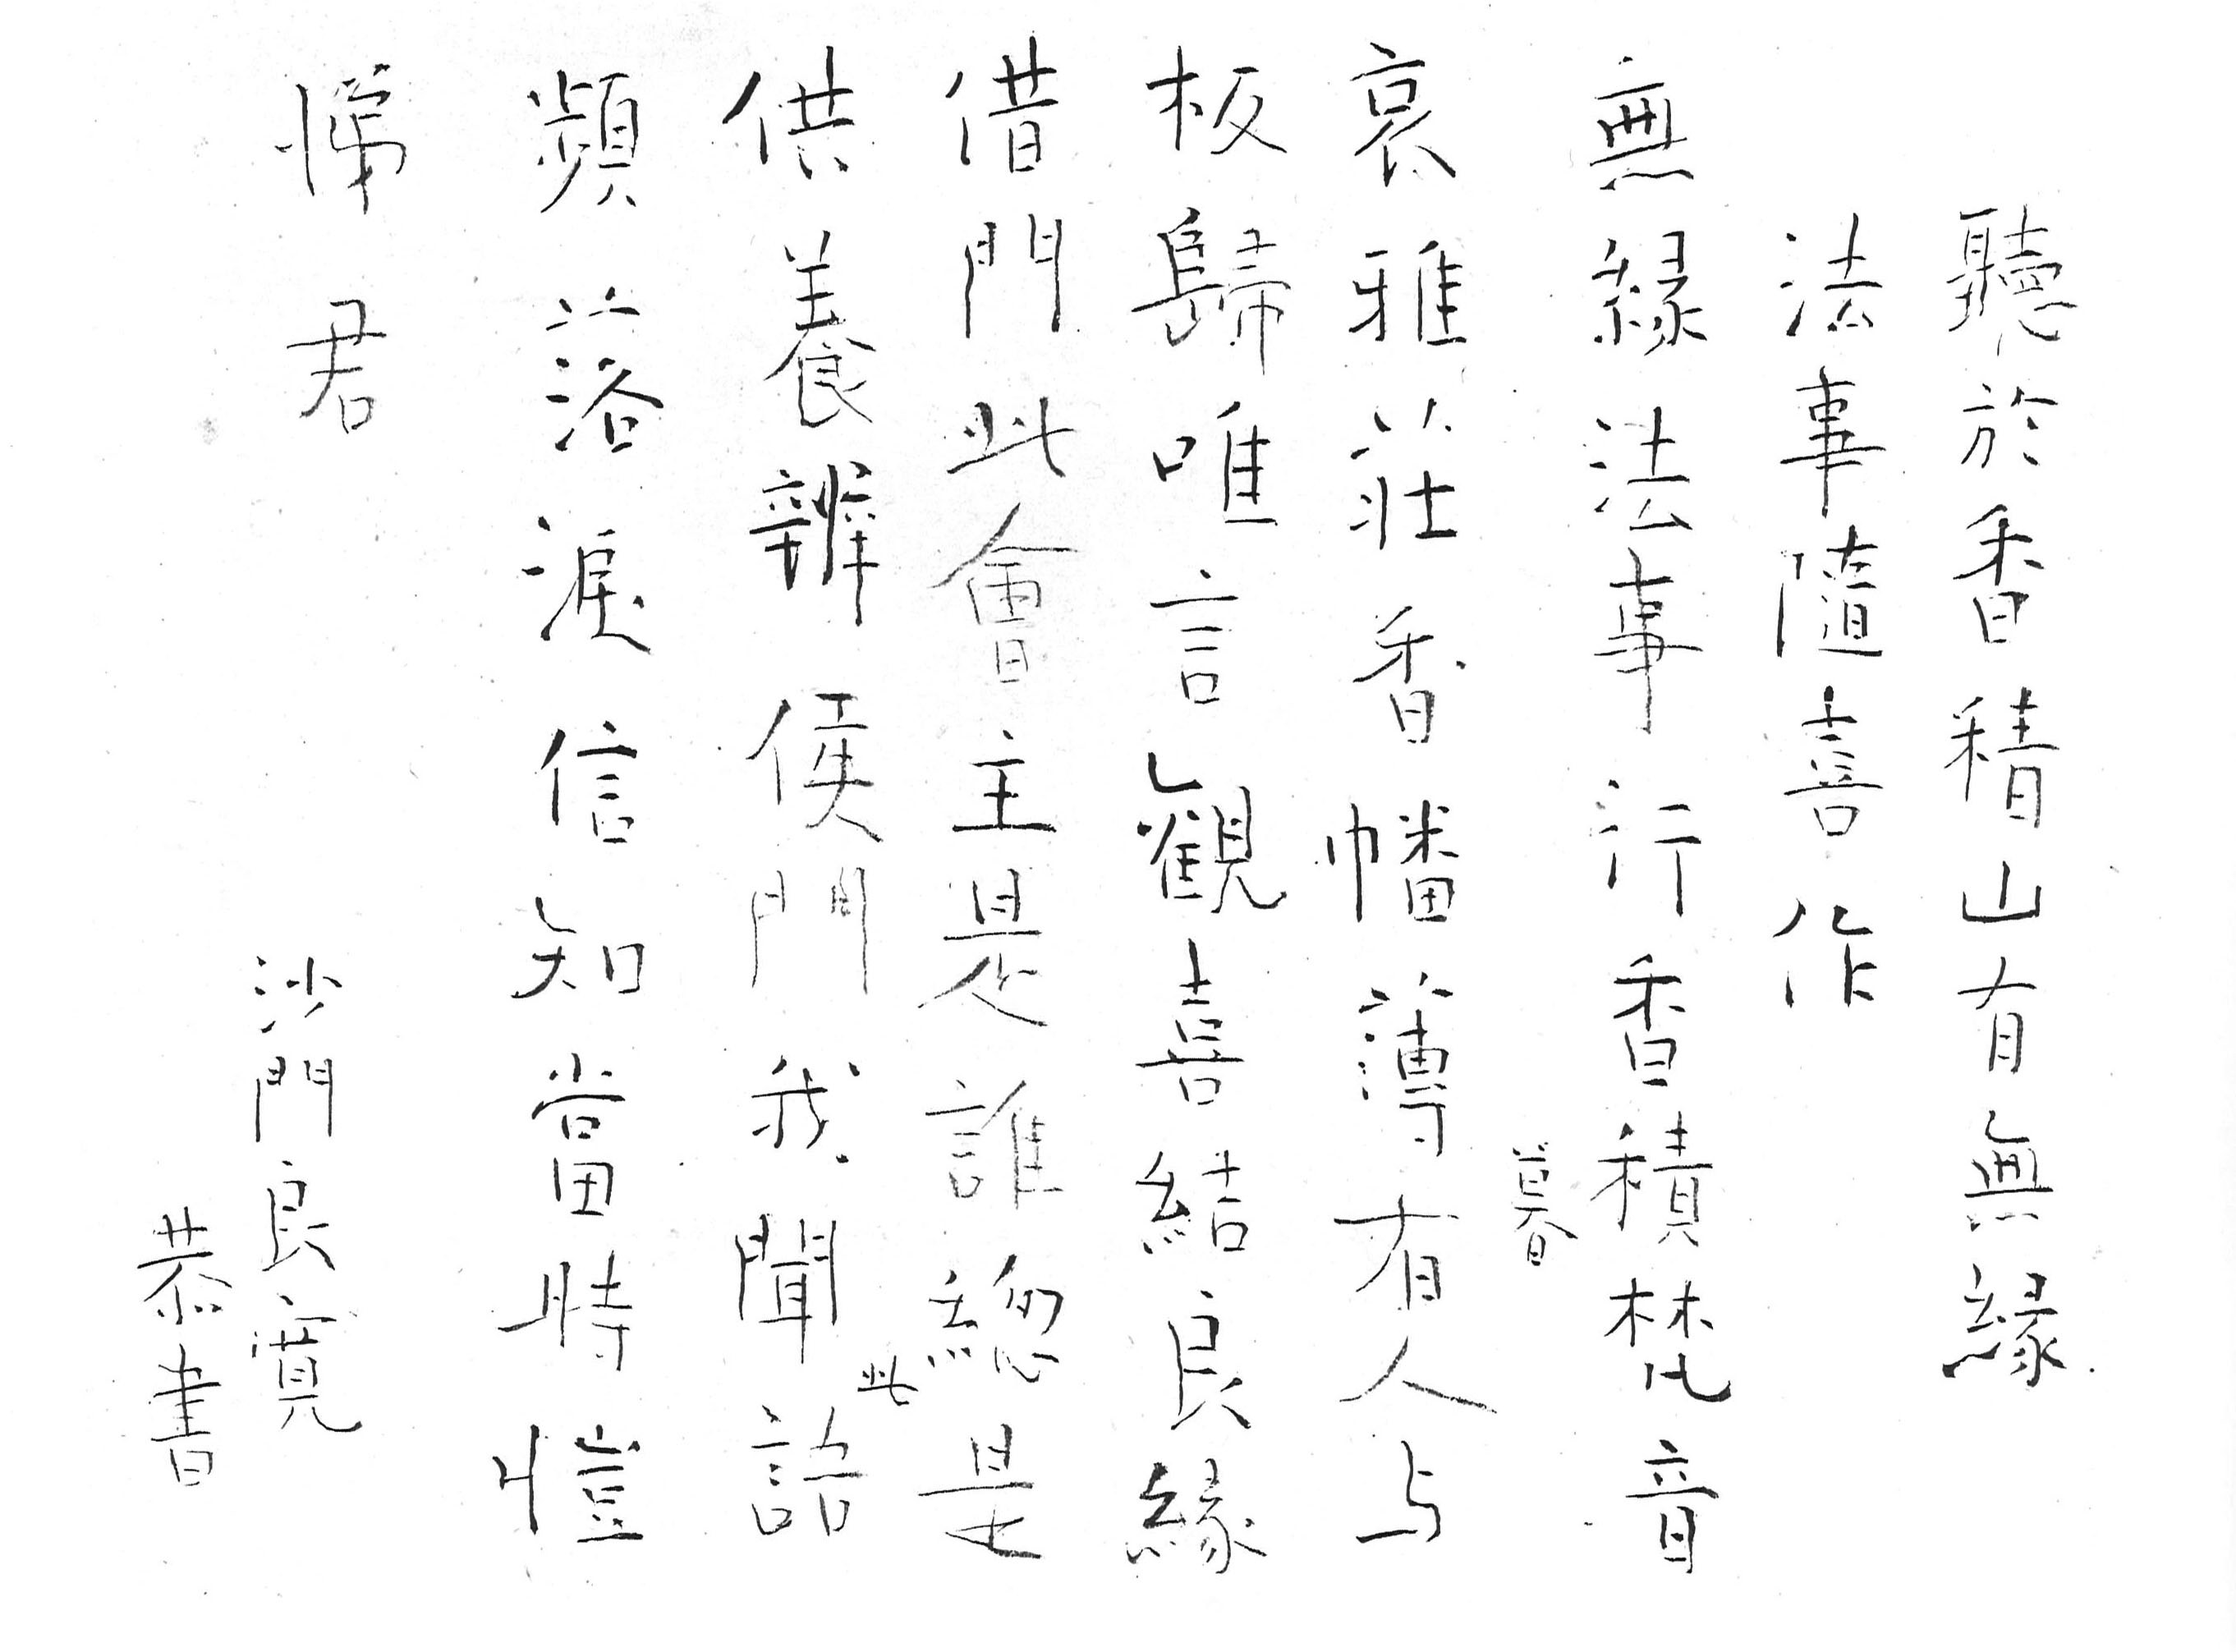 聽於香積山有無縁
法事隨喜作
無縁法事行香積梵音
哀雅荘香幡薄暮有人与
板歸唯言観喜結良縁
借門此會主是誰総是
供養辨侯門我聞此語
頻落淚信知當時愷
悌君
沙門良寛
恭書